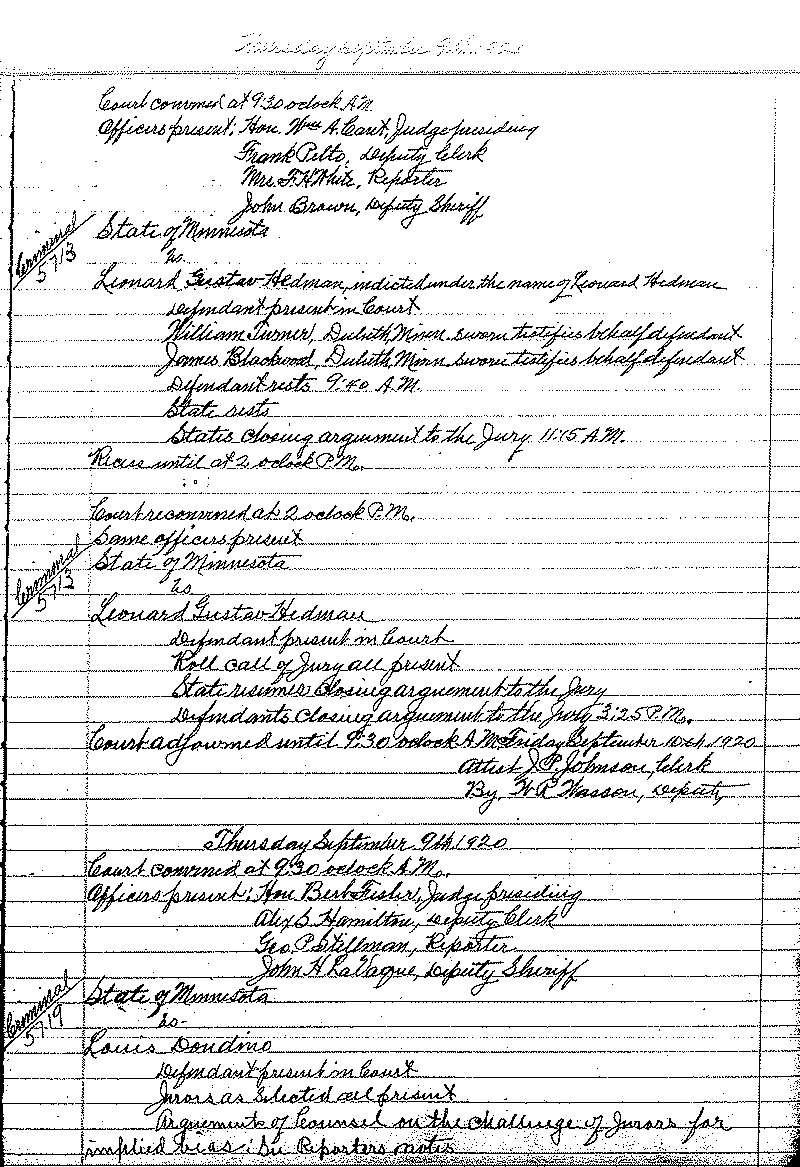 Thursday September 9th 1920
Court convened at 9:30 oclock A.M.
Officers present: Hon. Wm A. Cant, Judge presiding
Frank Pelto, Deputy Clerk
Mrs. F. H. White, Reporter
John Brown, Deputy Sheriff
Criminal
5713
State of Minnesota
vs
Leonard Gustav Hedman, indicted under the name of Leonard Hedman
Defendant present in Court
William Turner, Duluth, Minn. sworn testifies behalf defendant
James Blackwood, Duluth, Minn. sworn testifies behalf defendant
Defendant rests 9:40 A.M.
State rests
States closing arguement to the Jury 11:15 A.M.
Recess until at 2 oclock P.M.
Court reconvened at 2 oclock P.M.
Same officers present
Criminal
5713
State of Minnesota
vs
Leonard Gustav Hedman
Defendant present in Court
Roll call of Jury all present
State resumes closing arguement to the Jury
Defendants closing arguement to the Jury 3:25 P.M.
Court adjourned until 9:30 oclock A.M. Friday September 10th 1920
Attest J. P. Johnson, Clerk
By W. R. Wasson, Deputy
Thursday September 9th 1920
Court convened at 9:30 oclock A.M.
Officers present: Hon. Bert Fesler, Judge presiding
Alex S. Hamilton, Deputy Clerk
Geo. P. Stillman, Reporter
John H LaVaque, Deputy Sheriff
Criminal
5719
State of Minnesota
vs-
Louis Dondino
Defendant present in Court
Jurors as selected all present
Arguements of Counsel on the challenge of Jurors for
implied bias: See Reporters notes